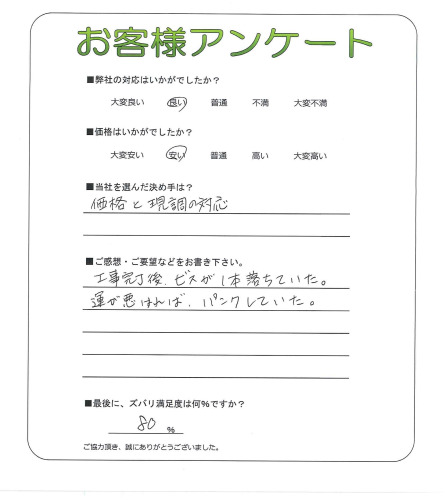 お客様アンケート
■弊社の対応はいかがでしたか？
大変良い 良い 普通 不満 大変不満
■価格はいかがでしたか？
大変安い 安い 普通 高い 大変高い
■当社を選んだ決め手は？
価格と現調の対応
■ご感想・ご要望などをお書き下さい。
工事完了後、ビスが1本落ちていた。
運が悪ければ、パンクしていた。
■最後に、ズバリ満足度は何％ですか？
80 %
ご協力頂き、誠にありがとうございました。